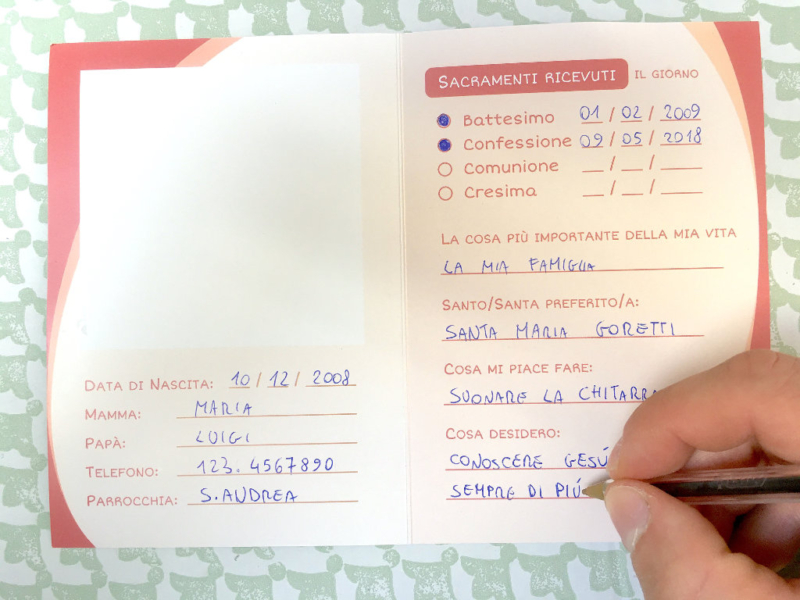 Data di Nascita: 10 / 12 / 2008
Mamma: MARIA
Papà: LUIGI
Telefono: 123.4567890
Parrocchia: S. ANDREA
Sacramenti ricevuti il giorno
Battesimo 01 / 02 / 2009
Confessione 09 / 05 / 2018
Comunione __ / __ / ____
Cresima __ / __ / ____
La cosa più importante della mia vita
LA MIA FAMIGLIA
Santo/Santa preferito/a:
SANTA MARIA GORETTI
Cosa mi piace fare:
SUONARE LA CHITARRA
Cosa desidero:
CONOSCERE GESÚ
SEMPRE DI PIÚ